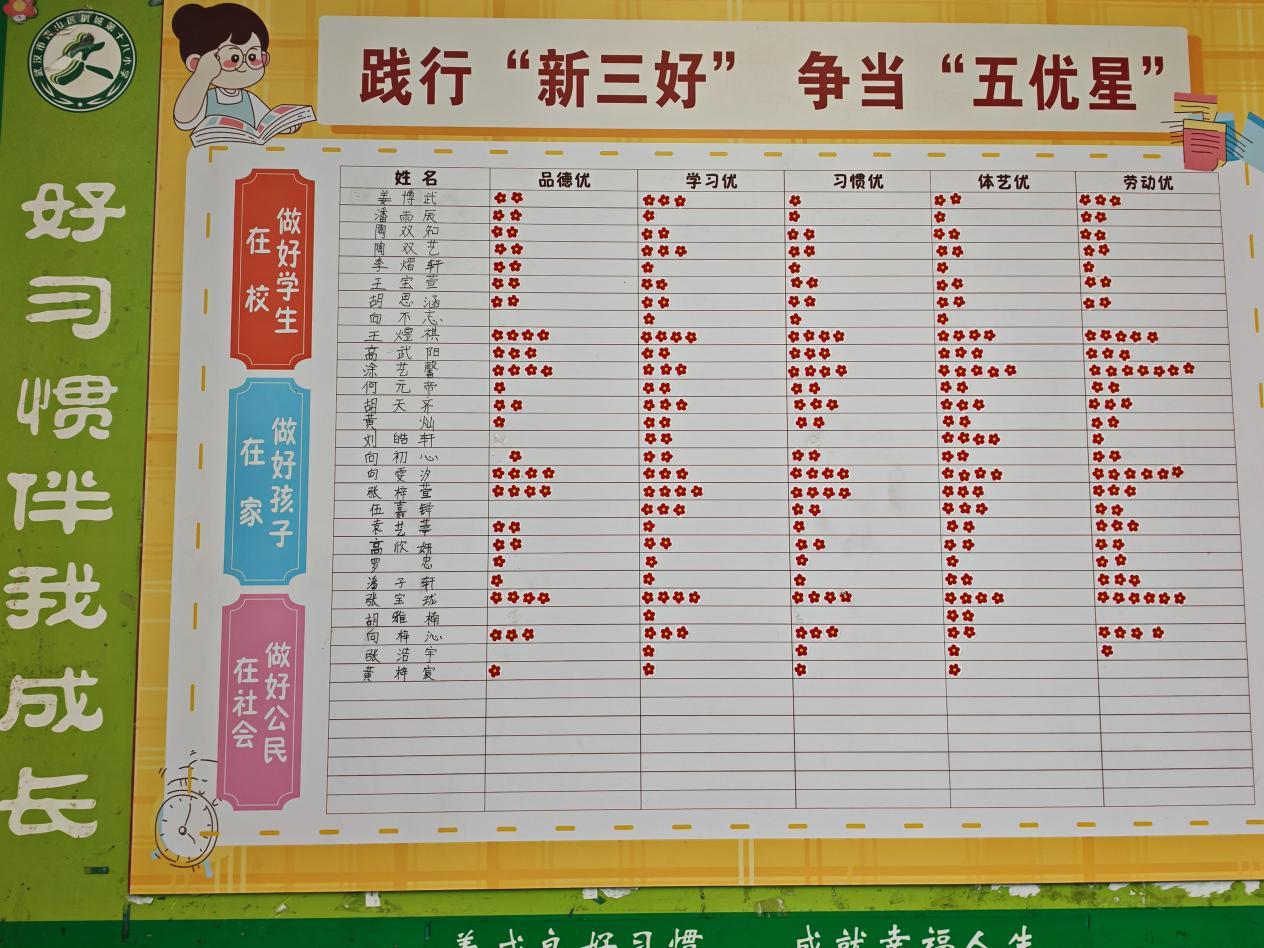 武汉市青山区钢城第十八小学
好习惯伴我成长
践行“新三好” 争当“五优星”
在校 做好学生
在家 做好孩子
在社会 做好公民
姓名 品德优 学习优 习惯优 体艺优 劳动优
姜博武
潘雨辰
陶双知
陶双艺
李熠轩
王宝萱
胡思涵
向不忘
王煜祺
高武阳
涂艺馨
何元帝
胡天齐
黄灿
刘皓轩
向初心
向雯汐
张梓萱
伍嘉锌
袁艺菲
高欣妍
罗忠
潘子轩
张宝珑
胡雅楠
向梓沁
张浩宇
黄梓宸
养成良好习惯 成就幸福人生